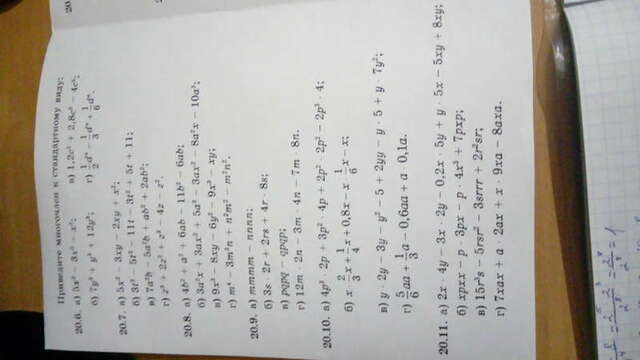 Приведите многочлен к стандартному виду:
20.6. а) 5x² − 3x² − x²; в) 1,2c² + 2,8c² − 4c²;
б) 7y³ + y³ + 12y³; г) 1/2 dⁿ − 1/3 dⁿ + 1/6 dⁿ.
20.7. а) 5x² − 3xy − 2xy + x²;
б) 3t² − 5t² − 11t − 3t² + 5t + 11;
в) 7a²b − 5a²b + ab² + 2ab²;
г) z³ + 2z² + z³ − 4z − z².
20.8. а) 4b² + a² + 6ab − 11b² − 6ab;
б) 3a²x + 3ax² + 5a³ − 3ax² − 8a²x − 10a³;
в) 9x³ − 8xy − 6y² − 9x³ − xy;
г) m⁴ − 3m²n + n²m² − m²n².
20.9. а) mmmm − nnnn;
б) 3s · 2r + 2rs + 4r · 8s;
в) pqpq − qpqp;
г) 12m · 2n − 3m · 4n − 7m · 8n.
20.10. а) 4p² · 2p + 3p² · 4p + 2p² · 2p² − 2p³ · 4;
б) x · 2/3 x + 1/4 x + 0,8x − x · 1/6 x − x;
в) y · 2y − 3y − y² − 5 + 2yy − y · 5 + y · 7y²;
г) 5/6 aa + 1/3 a − 0,6aa + a · 0,1a.
20.11. а) 2x · 4y − 3x · 2y − 0,2x · 5y + y · 5x − 5xy + 8xy;
б) xpxx − p · 3px − p · 4x³ + 7pxp;
в) 15r³s − 5rsr² − 3srrr + 2r²sr;
г) 7xax + a · 2ax + x · 9xa − 8axa.
20.